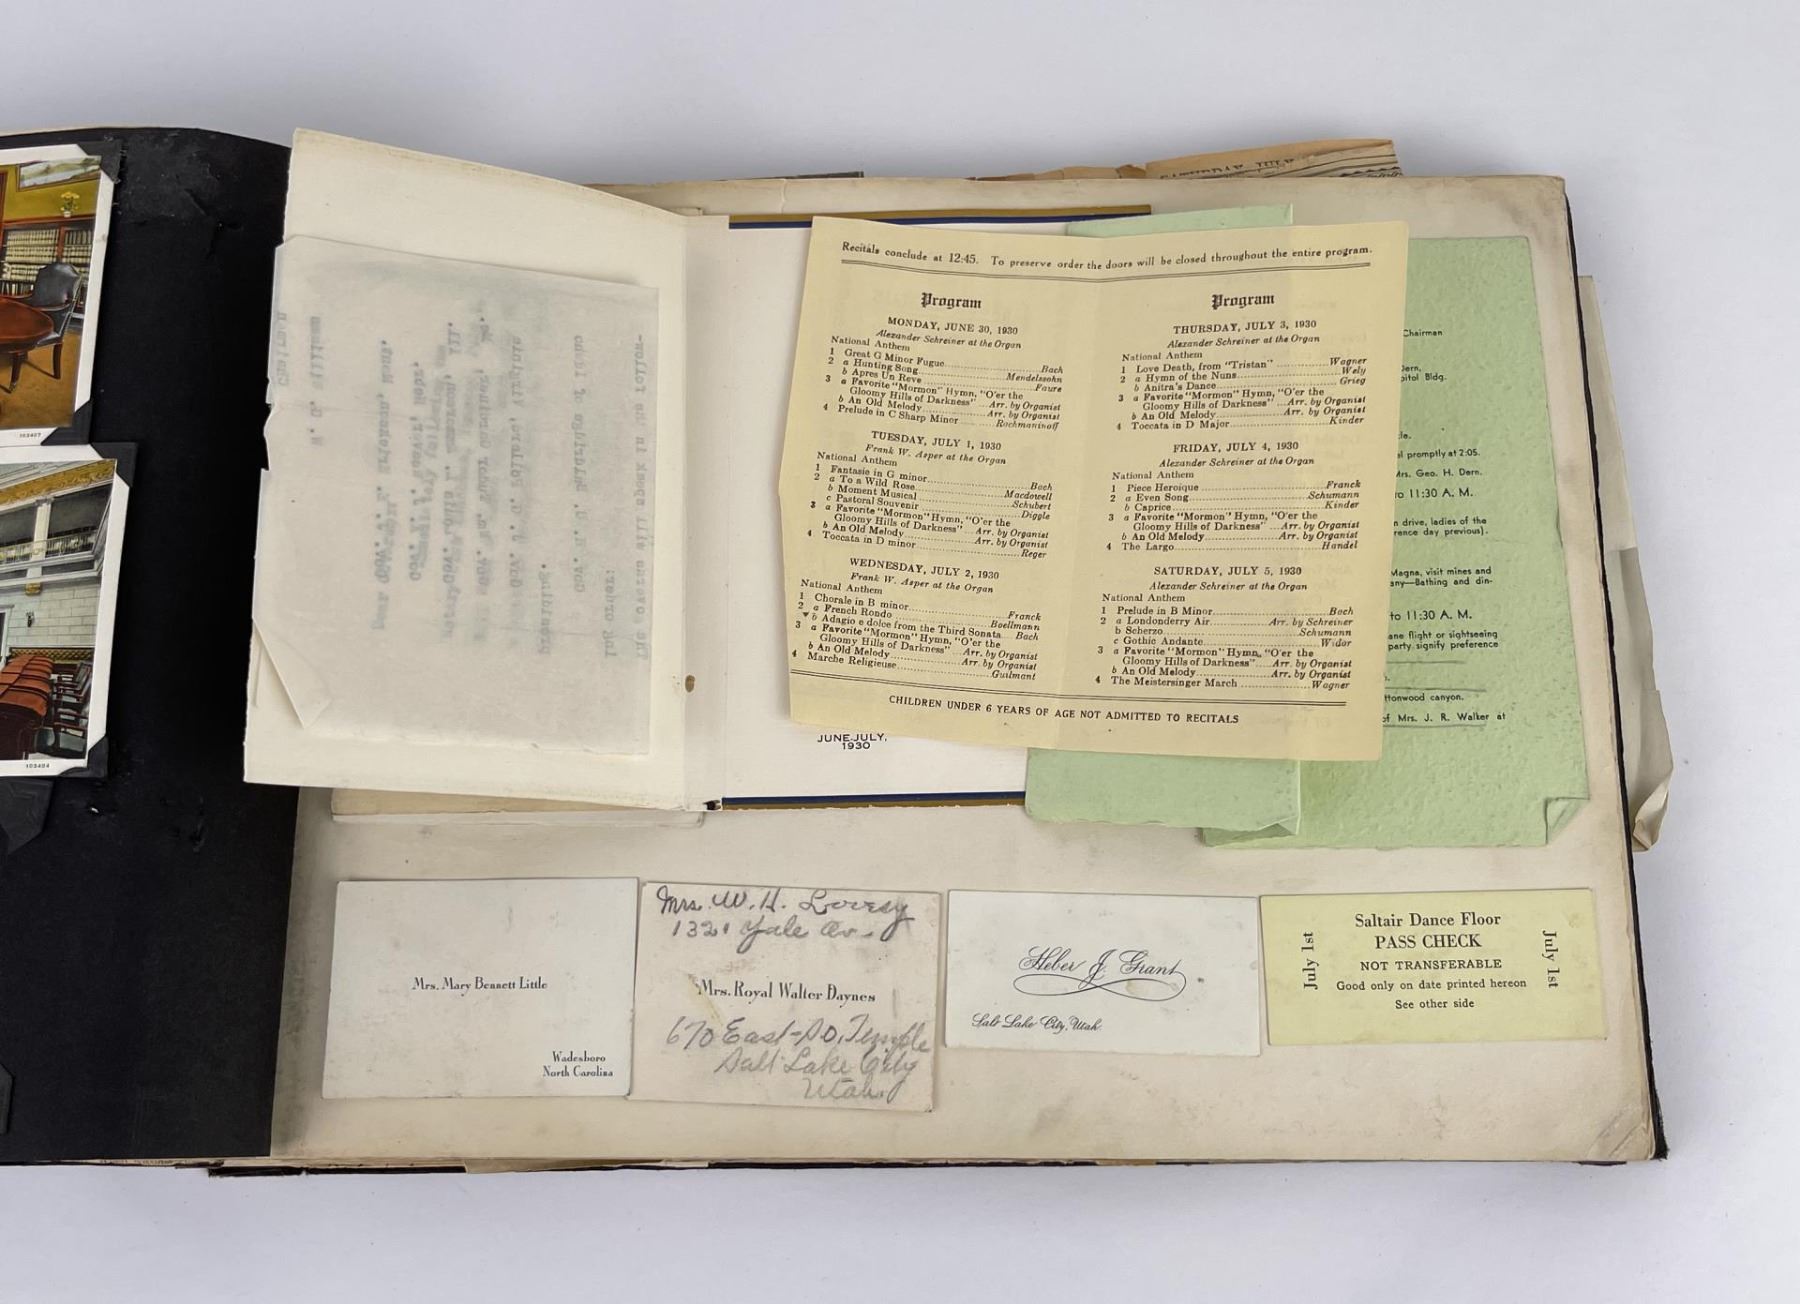 SATURDAY, JULY
103407
103404
Recitals conclude at 12:45. To preserve order the doors will be closed throughout the entire program.
Program
MONDAY, JUNE 30, 1930
Alexander Schreiner at the Organ
National Anthem
1 Great G Minor Fugue Bach
2 a Hunting Song Mendelssohn
b Apres Un Reve Faure
3 a Favorite "Mormon" Hymn, "O'er the
Gloomy Hills of Darkness" Arr. by Organist
b An Old Melody Arr. by Organist
4 Prelude in C Sharp Minor Rachmaninoff
TUESDAY, JULY 1, 1930
Frank W. Asper at the Organ
National Anthem
1 Fantasie in G minor Bach
2 a To a Wild Rose Macdowell
b Moment Musical Schubert
c Pastoral Souvenir Diggle
3 a Favorite "Mormon" Hymn, "O'er the
Gloomy Hills of Darkness" Arr. by Organist
b An Old Melody Arr. by Organist
4 Toccata in D minor Reger
WEDNESDAY, JULY 2, 1930
Frank W. Asper at the Organ
National Anthem
1 Chorale in B minor Franck
2 a French Rondo Boellmann
b Adagio e dolce from the Third Sonata Bach
3 a Favorite "Mormon" Hymn, "O'er the
Gloomy Hills of Darkness" Arr. by Organist
b An Old Melody Arr. by Organist
4 Marche Religieuse Guilmant
Program
THURSDAY, JULY 3, 1930
Alexander Schreiner at the Organ
National Anthem
1 Love Death, from "Tristan" Wagner
2 a Hymn of the Nuns Wely
b Anitra's Dance Grieg
3 a Favorite "Mormon" Hymn, "O'er the
Gloomy Hills of Darkness" Arr. by Organist
b An Old Melody Arr. by Organist
4 Toccata in D Major Kinder
FRIDAY, JULY 4, 1930
Alexander Schreiner at the Organ
National Anthem
1 Piece Heroique Franck
2 a Even Song Schumann
b Caprice Kinder
3 a Favorite "Mormon" Hymn, "O'er the
Gloomy Hills of Darkness" Arr. by Organist
b An Old Melody Arr. by Organist
4 The Largo Handel
SATURDAY, JULY 5, 1930
Alexander Schreiner at the Organ
National Anthem
1 Prelude in B Minor Bach
2 a Londonderry Air Arr. by Schreiner
b Scherzo Schumann
c Gothic Andante Widor
3 a Favorite "Mormon" Hymn, "O'er the
Gloomy Hills of Darkness" Arr. by Organist
b An Old Melody Arr. by Organist
4 The Meistersinger March Wagner
CHILDREN UNDER 6 YEARS OF AGE NOT ADMITTED TO RECITALS
JUNE-JULY,
1930
Chairman
Dern,
itol Bldg.
promptly at 2:05.
Mrs. Geo. H. Dern.
to 11:30 A. M.
drive, ladies of the
rence day previous).
Magna, visit mines and
any—Bathing and din-
to 11:30 A. M.
ane flight or sightseeing
party signify preference
ttonwood canyon.
of Mrs. J. R. Walker at
The governs will speak in the follow-
ing order:
Gov. H. C. Baldridge of Idaho
presiding.
Gov. J. G. Pollard, Virginia
W. G. Williams
Chairman
Mrs. Mary Bennett Little
Wadesboro
North Carolina
Mrs. W. H. Lovesy
1321 Yale Av.
Mrs. Royal Walter Daynes
670 East-So. Temple
Salt Lake City
Utah.
Heber J. Grant
Salt Lake City, Utah.
July 1st
Saltair Dance Floor
PASS CHECK
NOT TRANSFERABLE
Good only on date printed hereon
See other side
July 1st